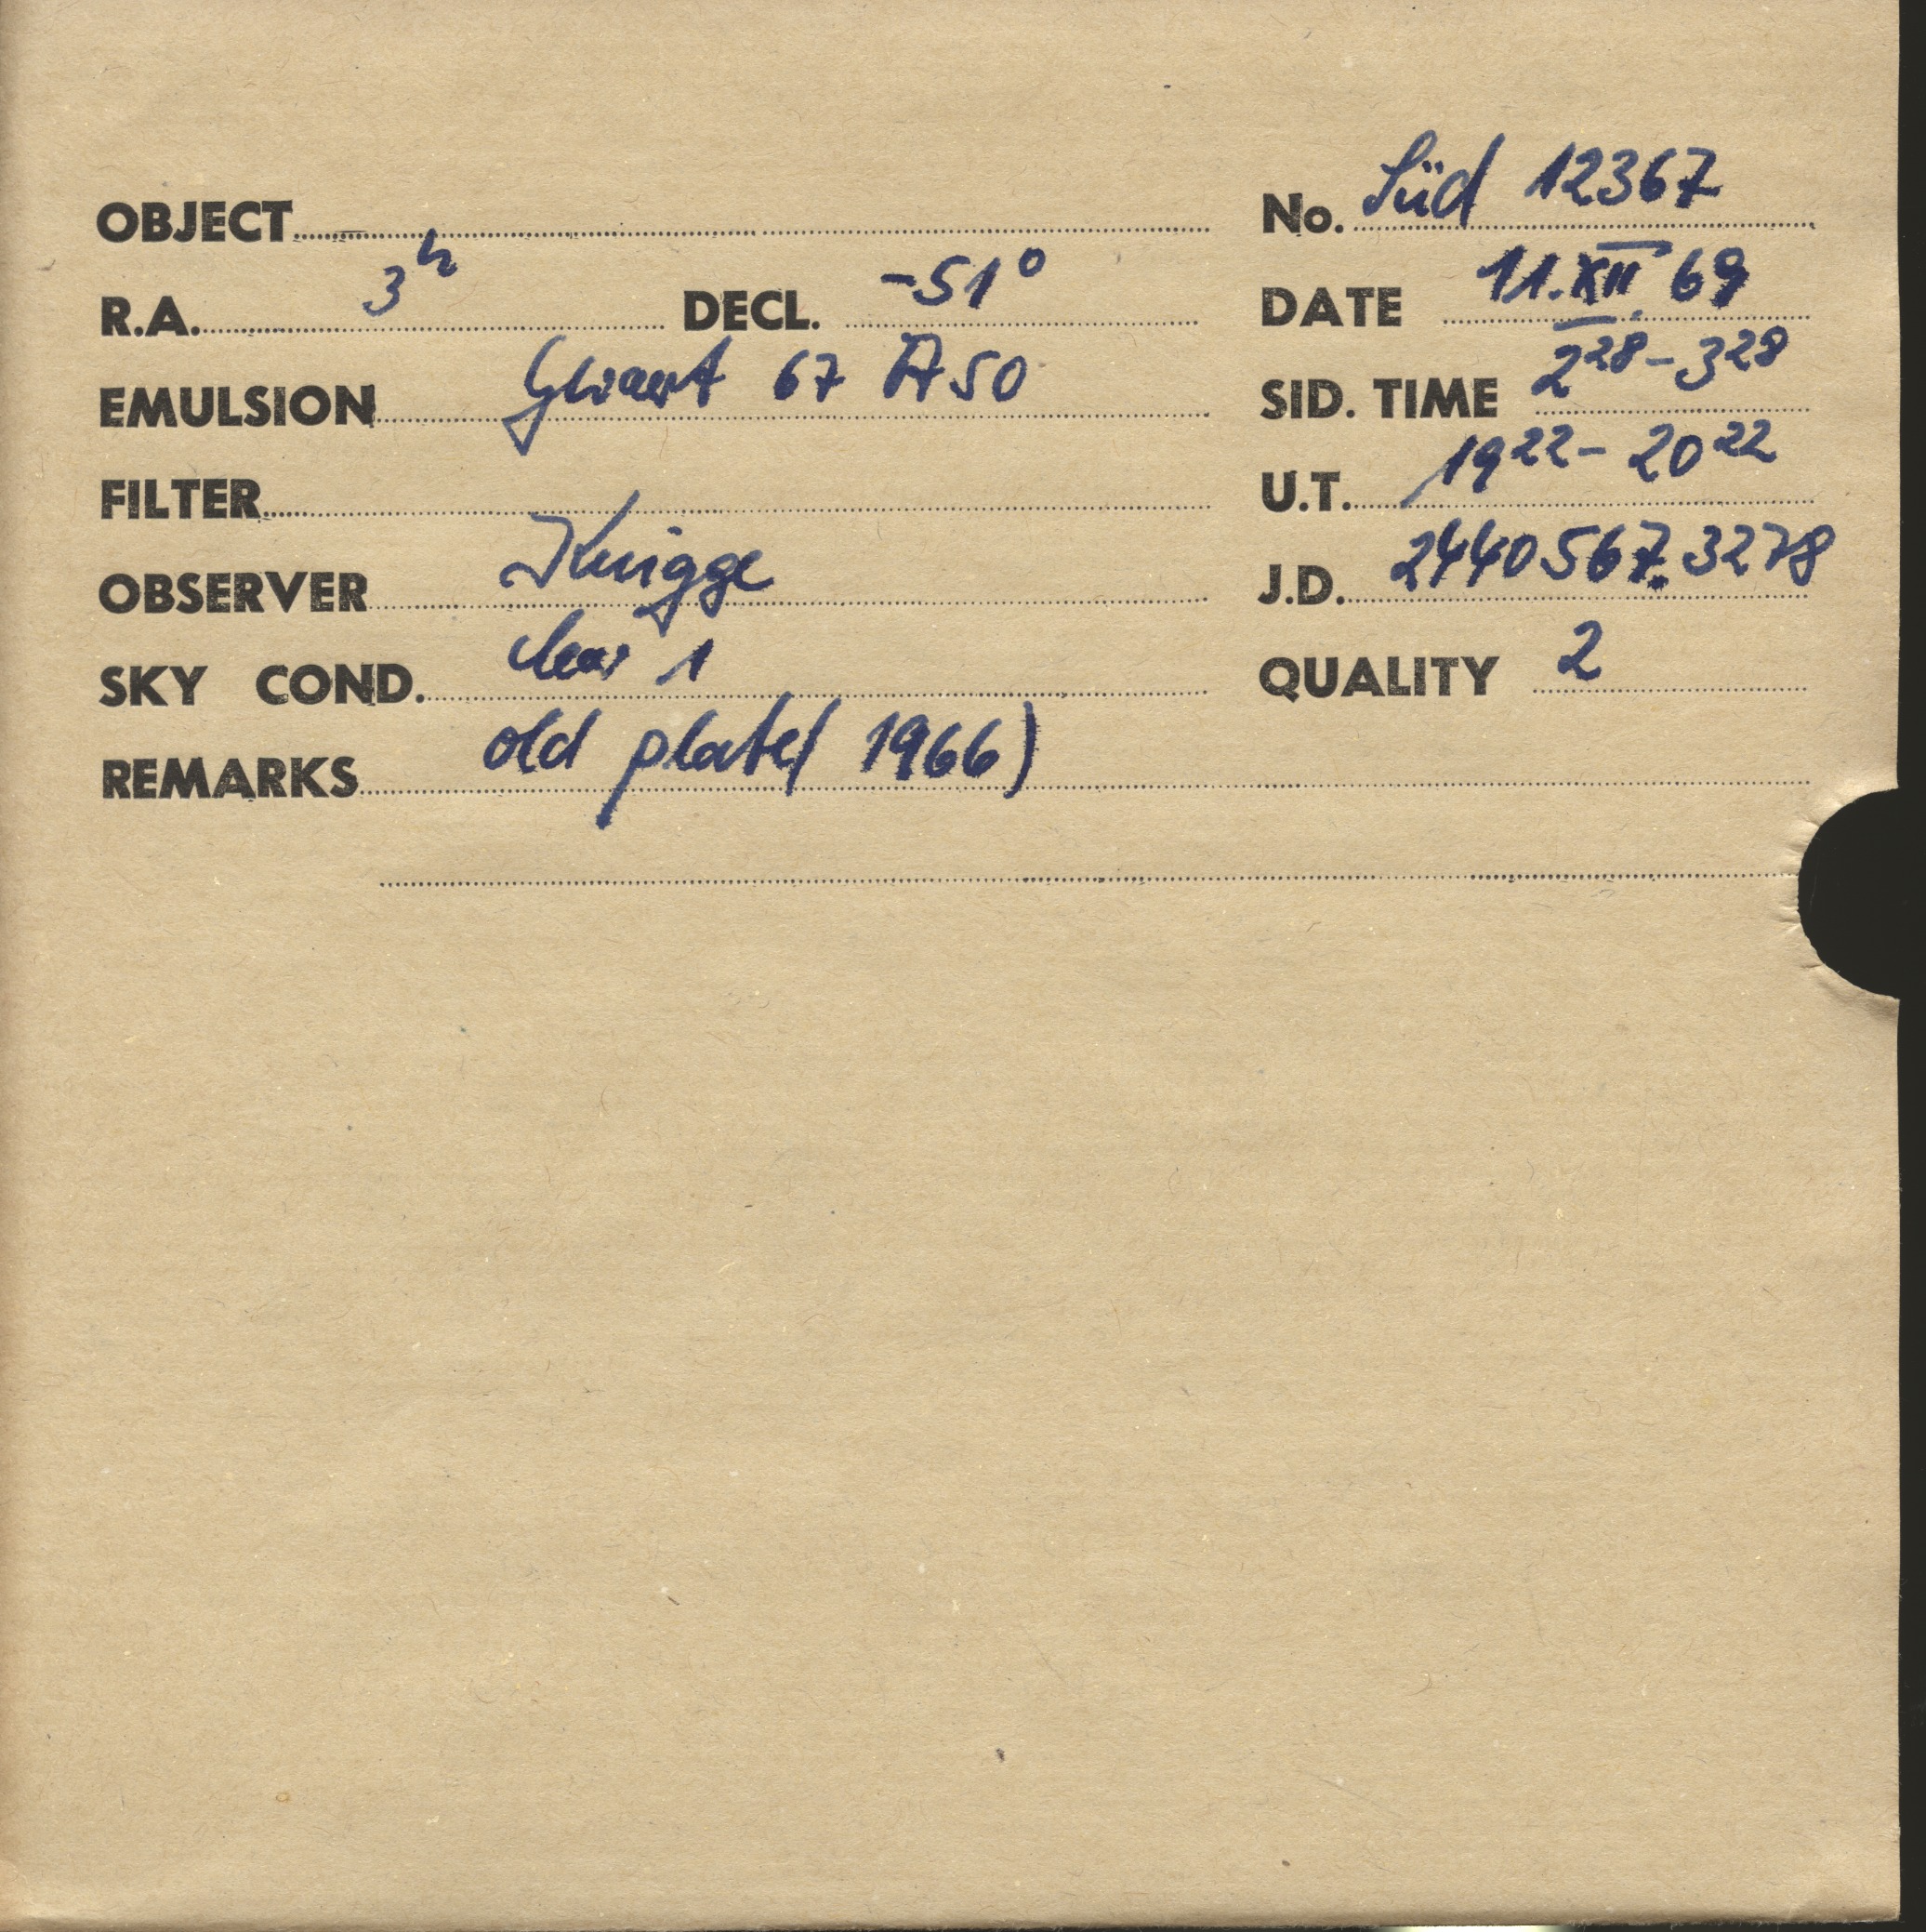 OBJECT No. Süd 12367
R.A. 3h DECL. -51° DATE 11.XII 69
EMULSION Gevaert 67 A50 SID. TIME 2 28 - 3 28
FILTER U.T. 19 22 - 20 22
OBSERVER Knigge J.D. 2440567.3278
SKY COND. clear 1 QUALITY 2
REMARKS old plate (1966)